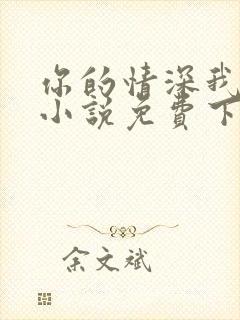 你的情深我
小说免费下
余文斌